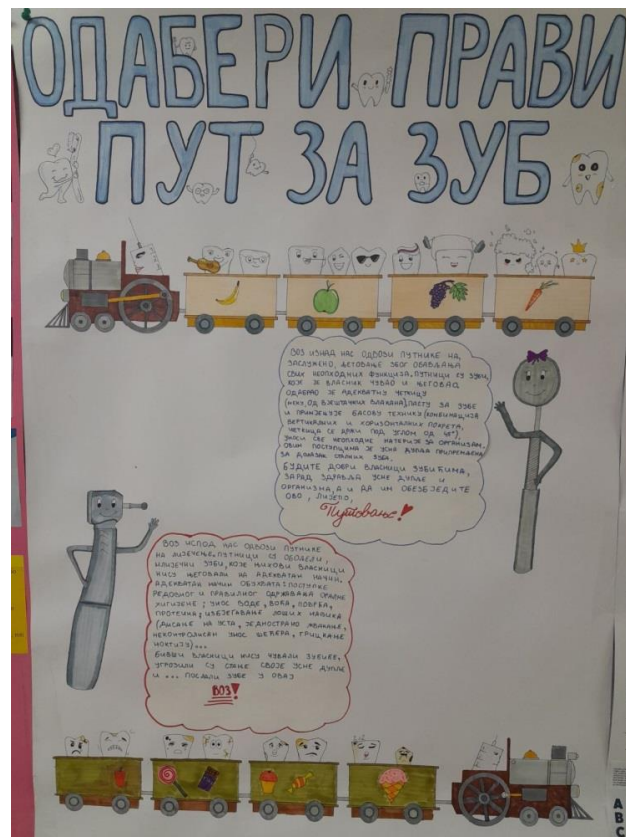 ОДАБЕРИ ПРАВИ
ПУТ ЗА ЗУБ
ВОЗ ИЗНАД НАС ОДВОЗИ ПУТНИКЕ НА,
ЗАСЛУЖЕНО, ЉЕТОВАЊЕ ЗБОГ ОБАВЉАЊА
СВИХ НЕОПХОДНИХ ФУНКЦИЈА. ПУТНИЦИ СУ ЗУБИ,
КОЈЕ ЈЕ ВЛАСНИК ЧУВАО И ЊЕГОВАО
ОДАБРАО ЈЕ АДЕКВАТНУ ЧЕТКИЦУ
(МЕКУ, ОД ВЈЕШТАЧКИХ ВЛАКАНА), ПАСТУ ЗА ЗУБЕ
И ПРИМЈЕЊУЈЕ БАСОВУ ТЕХНИКУ (КОМБИНАЦИЈА
ВЕРТИКАЛНИХ И ХОРИЗОНТАЛНИХ ПОКРЕТА,
ЧЕТКИЦА СЕ ДРЖИ ПОД УГЛОМ ОД 45°),
УНОСИ СВЕ НЕОПХОДНЕ МАТЕРИЈЕ ЗА ОРГАНИЗАМ.
ОВИМ ПОСТУПЦИМА ЈЕ УСНА ДУПЉА ПРИПРЕМЉЕНА
ЗА ДОЛАЗАК СТАЛНИХ ЗУБА.
БУДИТЕ ДОБРИ ВЛАСНИЦИ ЗУБИЋИМА,
ЗАРАД ЗДРАВЉА УСНЕ ДУПЉЕ И
ОРГАНИЗМА, А И ДА ИМ ОБЕЗБЈЕДИТЕ
ОВО, ЛИЈЕПО,
Путовање!
ВОЗ ИСПОД НАС ОДВОЗИ ПУТНИКЕ
НА ЛИЈЕЧЕЊЕ. ПУТНИЦИ СУ ОБОЛЕЛИ,
МЛИЈЕЧНИ ЗУБИ, КОЈЕ ЊИХОВИ ВЛАСНИЦИ
НИСУ ЊЕГОВАЛИ НА АДЕКВАТАН НАЧИН.
АДЕКВАТАН НАЧИН ОБУХВАТА: ПОСТУПКЕ
РЕДОВНОГ И ПРАВИЛНОГ ОДРЖАВАЊА ОРАЛНЕ
ХИГИЈЕНЕ; УНОС ВОДЕ, ВОЋА, ПОВРЋА,
ПРОТЕИНА; ИЗБЈЕГАВАЊЕ ЛОШИХ НАВИКА
(ДИСАЊЕ НА УСТА, ЈЕДНОСТРАНО ЖВАКАЊЕ,
НЕКОНТРОЛИСАН УНОС ШЕЋЕРА, ГРИЦКАЊЕ
НОКТИЈУ)...
БИВШИ ВЛАСНИЦИ НИСУ ЧУВАЛИ ЗУБИЋЕ,
УГРОЗИЛИ СУ СТАЊЕ СВОЈЕ УСНЕ ДУПЉЕ
И ... ПОСЛАЛИ ЗУБЕ У ОВАЈ
ВОЗ!
A
B
C